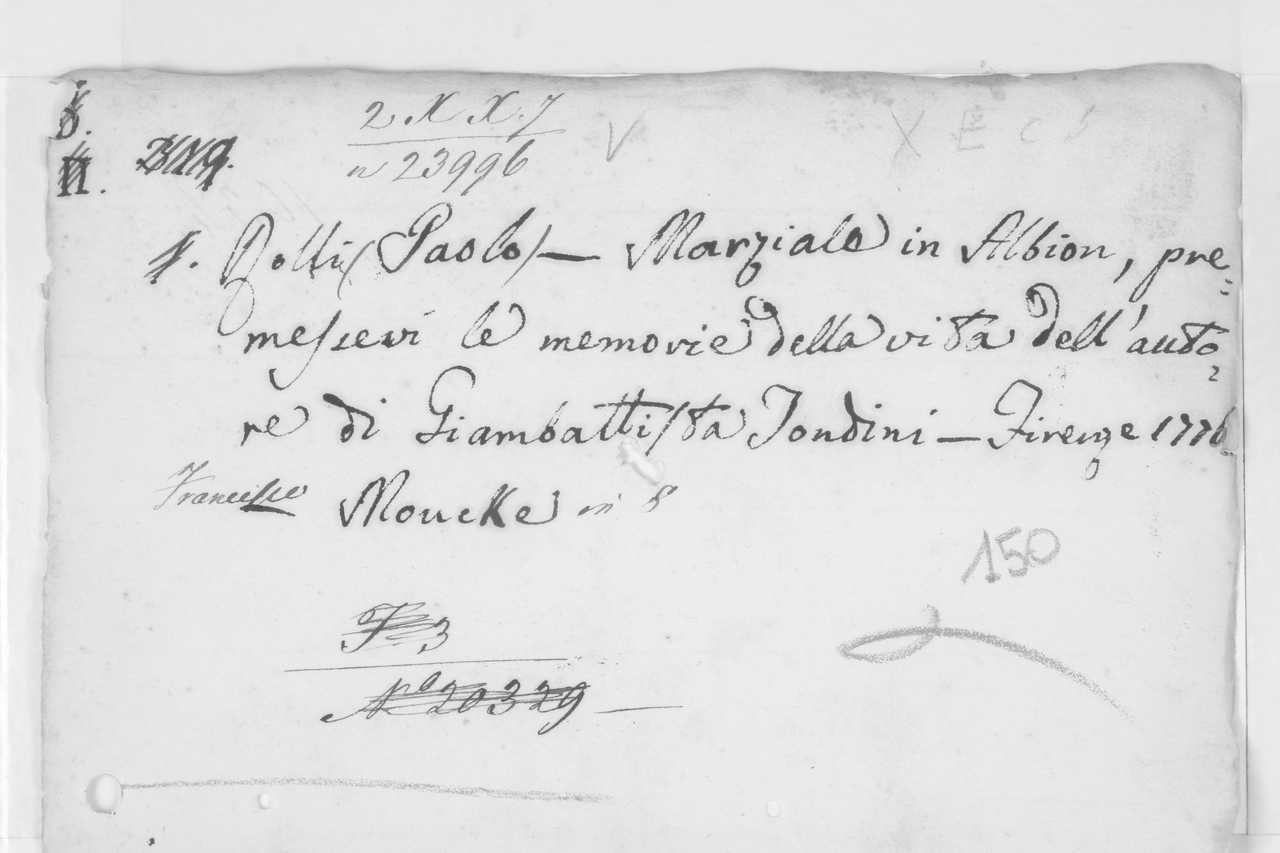 2 X X. 7
n 23996
V
X E C S
1. Rolli (Paolo) — Marziale in Albion, pre=
messevi le memorie della vita dell'auto=
re di Giambattista Tondini — Firenze 1776
Francesco Moucke in 8
150
F. 3
Nº 20329